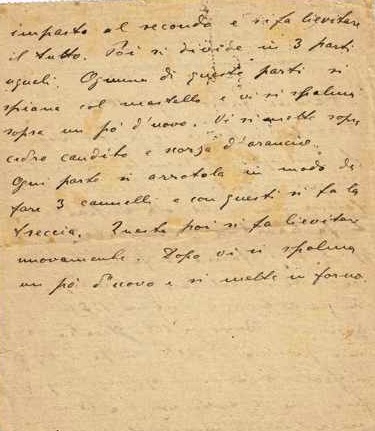 impasto al secondo e si fa lievitare
il tutto. Poi si divide in 3 parti
uguali. Ognuna di queste parti si
spiana col mattello e vi si spalma
sopra un pó d'uovo. Vi si mette sopra
cedro candito e scorza d'arancio.
Ogni parte si arrotola in modo da
fare 3 cannelli e con questi si fa la
treccia. Questa poi si fa lievitare
nuovamente. Dopo vi si spalma
un pó d'uovo e si mette in forno.